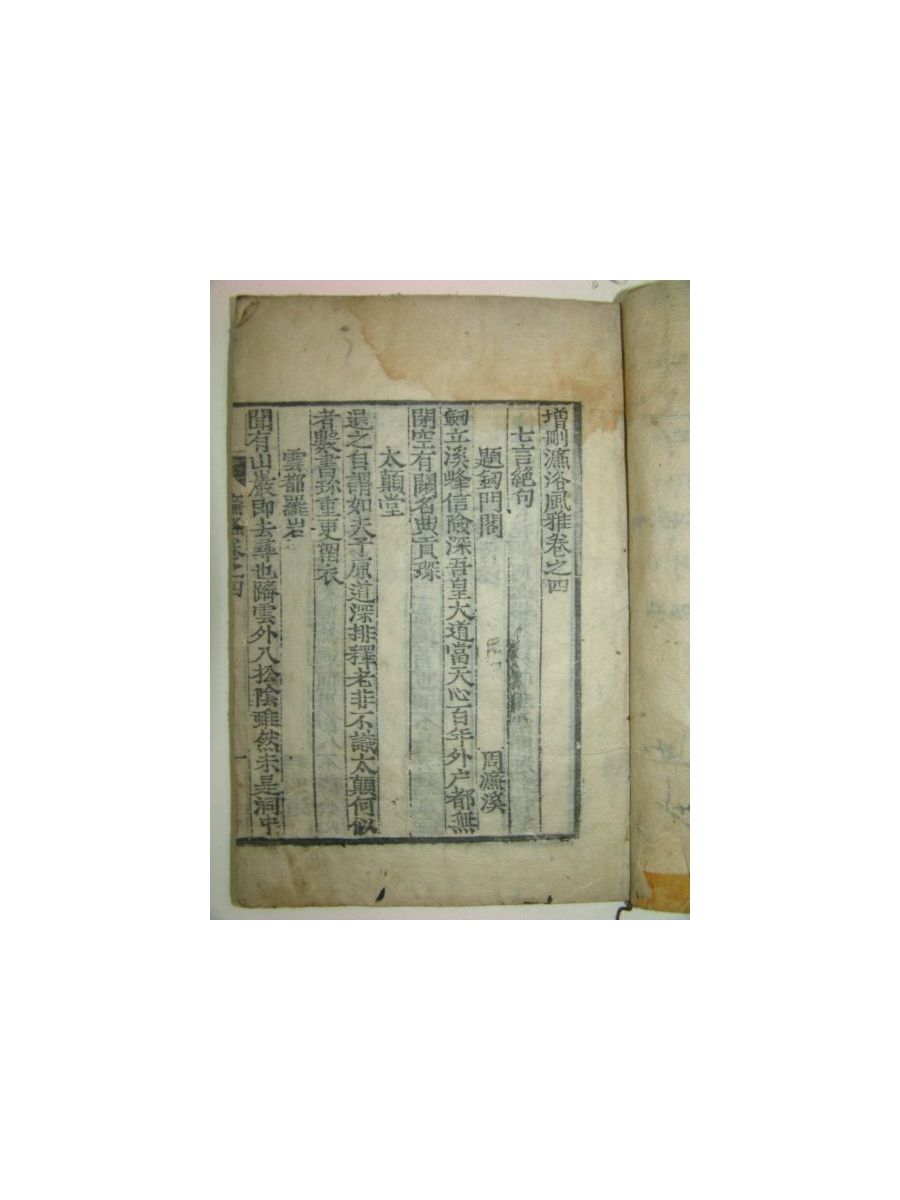 增刪濂洛風雅卷之四
七言絕句
題劒門關 周濂溪
劒立溪峰信險深吾皇大道當天心百年外户都無
閉空有關名典貢琛
太顛堂
退之自謂如夫子原道深排釋老非不識太顛何似
者數書珍重更留衣
雲都羅岩
聞有山巖即去尋也躋雲外入松陰雖然未是洞中
濂洛卷之四 一